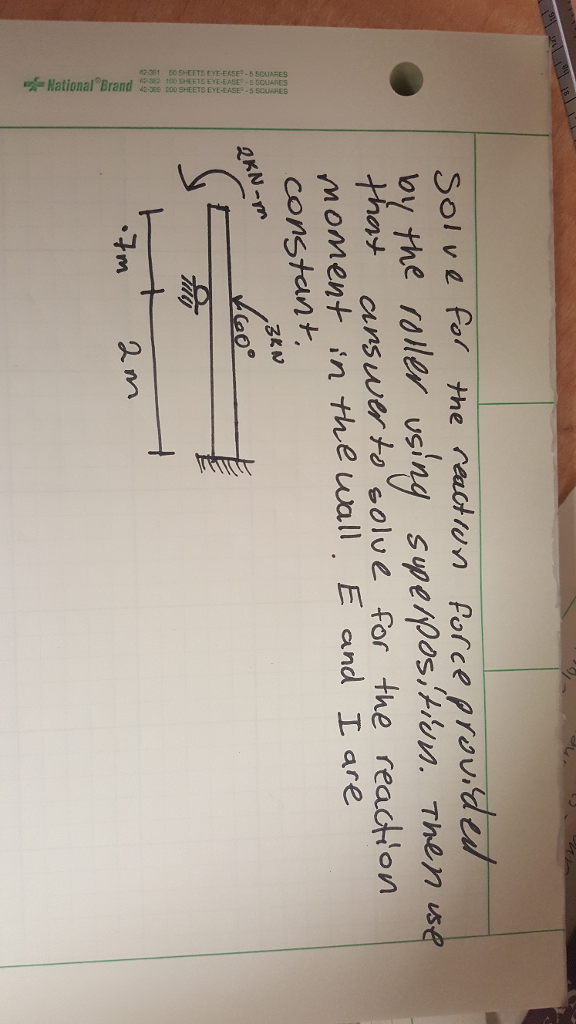 Solve for the reaction force provided
by the roller using superposition. Then use
that answer to solve for the reaction
moment in the wall. E and I are
constant.
2KN-m
3KN
60°
.7m
2m
National® Brand
42-381 50 SHEETS EYE-EASE® - 5 SQUARES
42-382 100 SHEETS EYE-EASE® - 5 SQUARES
42-389 200 SHEETS EYE-EASE® - 5 SQUARES